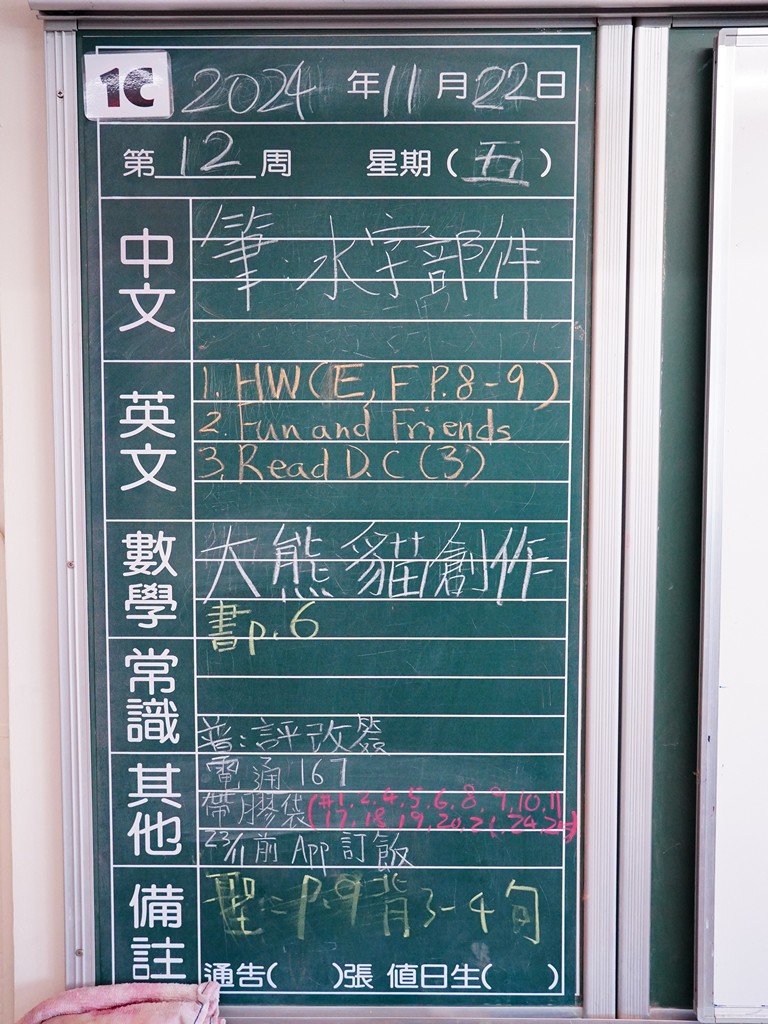 1C
2024 年 11 月 22 日
第 12 周 星期 ( 五 )
中文
筆:水字部件
英文
1. HW (E, F P.8-9)
2. Fun and Friends
3. Read D.C (3)
數學
大熊貓創作
書p.6
常識
普:評改簽
其他
電通 167
帶膠袋 (#1,2,4,5,6,8,9,10,11
17,18,19,20,21,24,25)
23/11前 App 訂飯
備註
聖:P.9背3-4句
通告( )張 值日生( )